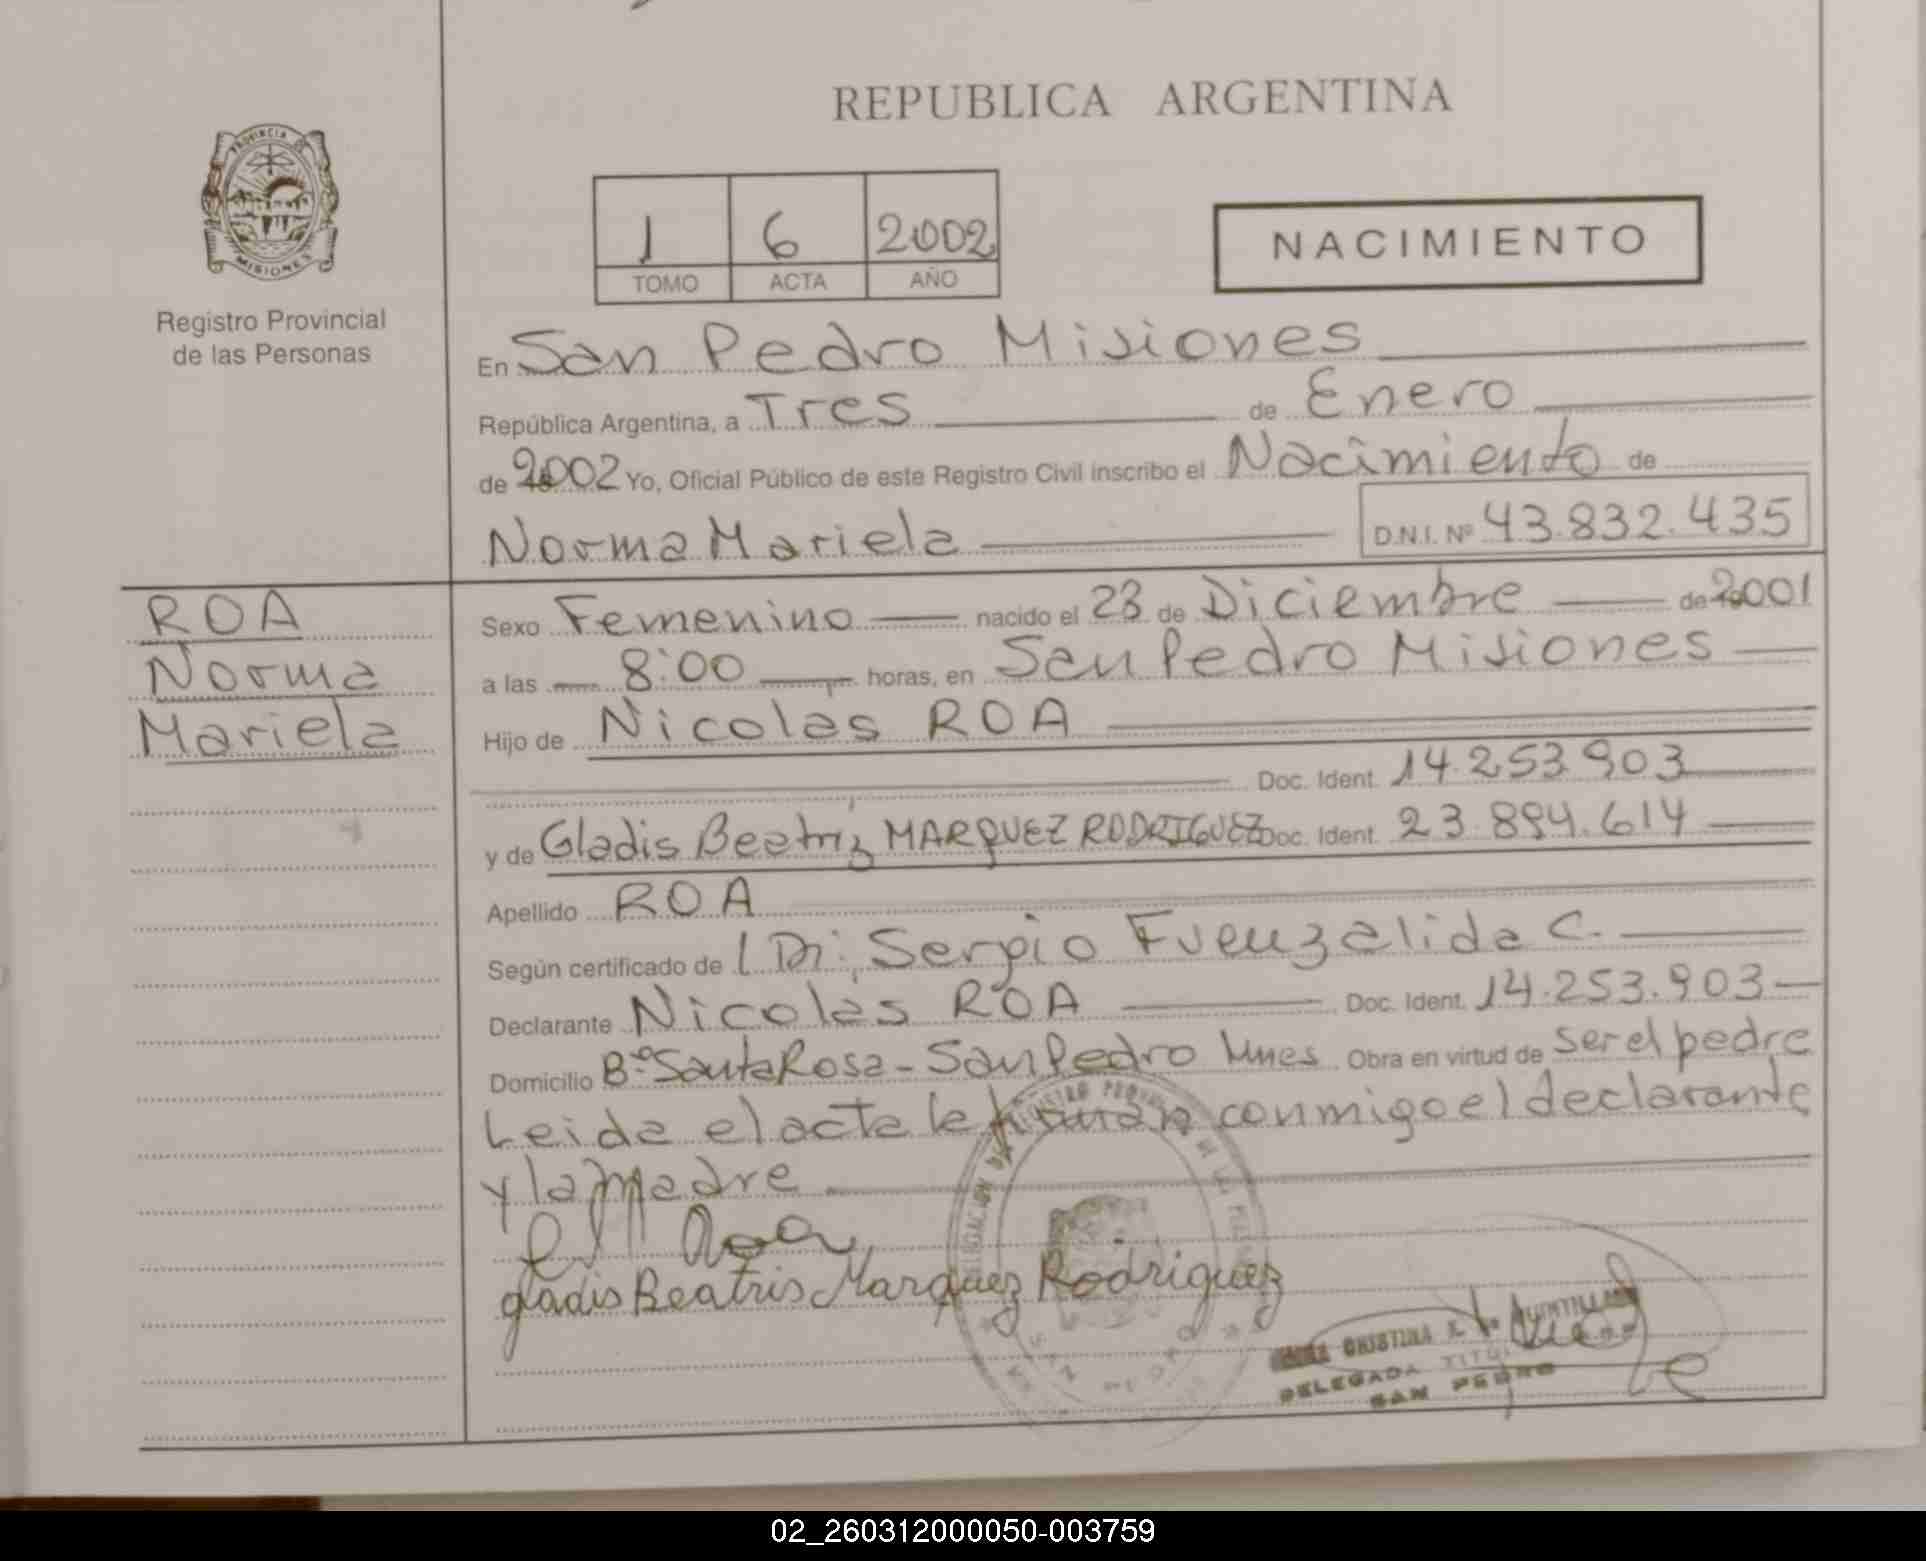 REPUBLICA ARGENTINA
PROVINCIA DE
MISIONES
Registro Provincial
de las Personas
1 6 2002
TOMO ACTA AÑO
NACIMIENTO
En San Pedro Misiones
República Argentina, a Tres de Enero
de 2002 Yo, Oficial Público de este Registro Civil inscribo el Nacimiento de
Norma Mariela D.N.I. Nº 43.832.435
ROA
Norma
Mariela
Sexo Femenino nacido el 23 de Diciembre de 2001
a las 8:00 horas, en San Pedro Misiones
Hijo de Nicolás ROA
Doc. Ident. 14.253.903
y de Gladis Beatriz MARQUEZ RODRIGUEZ Doc. Ident. 23.894.614
Apellido ROA
Según certificado de Dr. Sergio Fuenzalida C.
Declarante Nicolás ROA Doc. Ident. 14.253.903
Domicilio Bº Santa Rosa - San Pedro Mnes Obra en virtud de ser el padre
Leida el acta la firman conmigo el declarante
y la madre
Roa
gladis Beatris Marquez Rodriguez
CRISTINA
DELEGADA TITULAR
SAN PEDRO
02_260312000050-003759